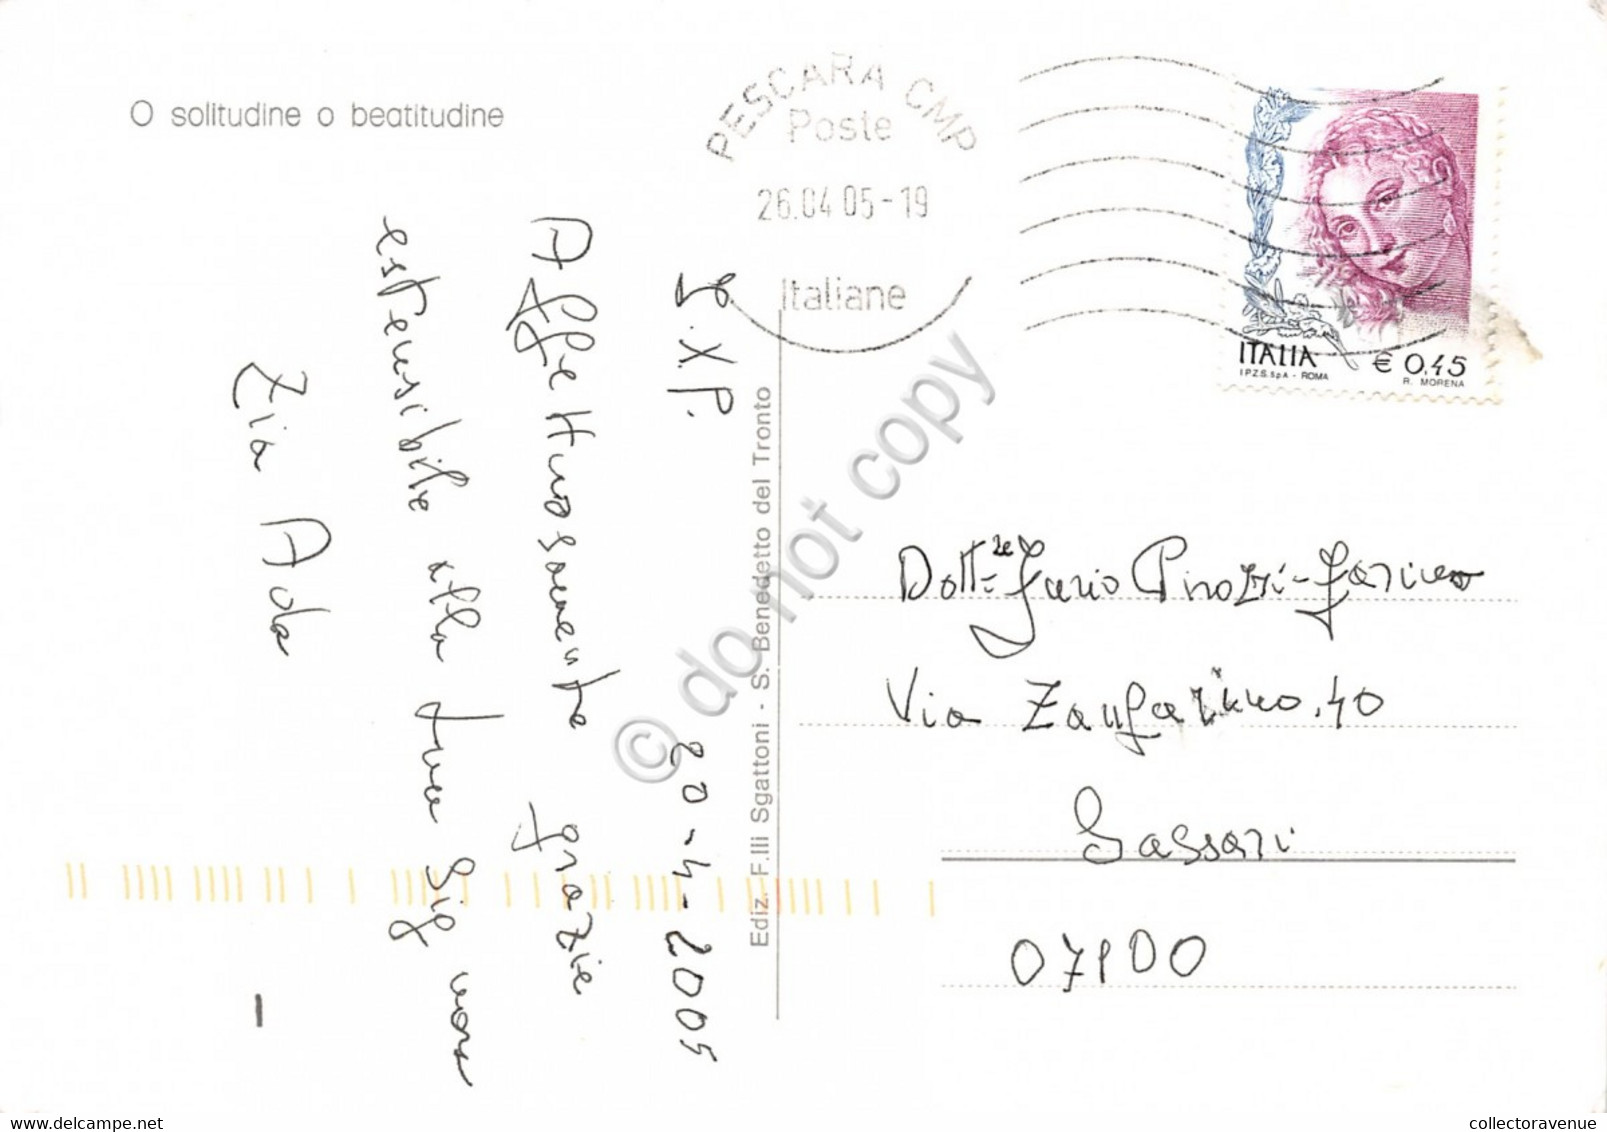 O solitudine o beatitudine
PESCARA CMP
Poste
26.04 05-19
Italiane
ITALIA
€ 0,45
I.P.Z.S. S.p.A. - ROMA
R. MORENA
S.X.P. 20-4-2005
Affettuosamente grazie
estensibile alla tua Signora
Zia Ada
Ediz. F.lli Sgattoni - S. Benedetto del Tronto
© do not copy
Dott.re
Via Zanfarino, 40
Sassari
07100
collectoravenue.com